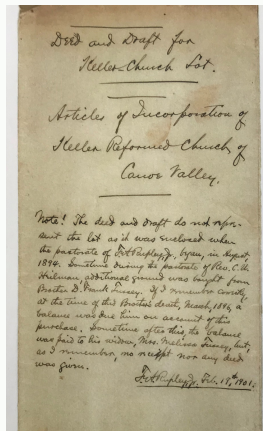 Deed and Draft for
Keller Church Lot.
Articles of Incorporation of
Keller Reformed Church of
Canoe Valley.
Note! The deed and draft do not repre-
sent the lot as it was enclosed when
the pastorate of F. A. Rupley, Jr., began, in August,
1894. Sometime during the pastorate of Rev. C. H.
Heilman, additional ground was bought from
Brother D. Frank Fussey. If I remember correctly,
at the time of the Brother's death, March, 1896, a
balance was due him on account of this
purchase. Sometime after this, the balance
was paid to his widow, Mrs. Melissa Fussey, but,
as I remember, no receipt nor any deed
was given.
F. A. Rupley, Jr. Feb. 15th 1901.